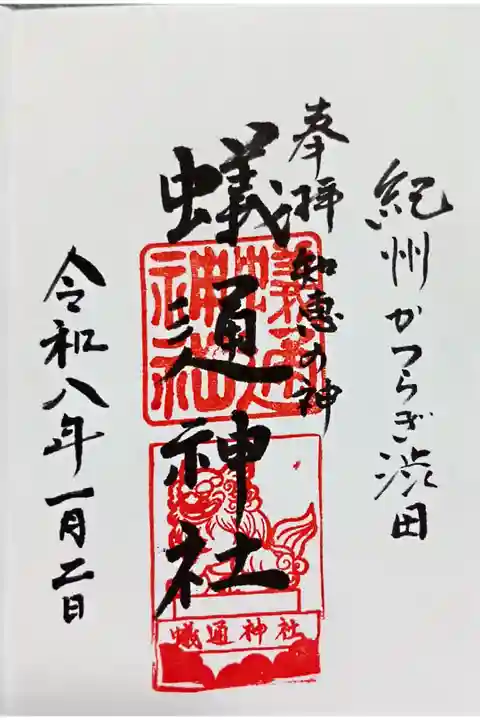 紀州かつらぎ渋田
奉拝 知恵の神
蟻通神社
蟻通神社
蟻通神社
令和八年一月二日